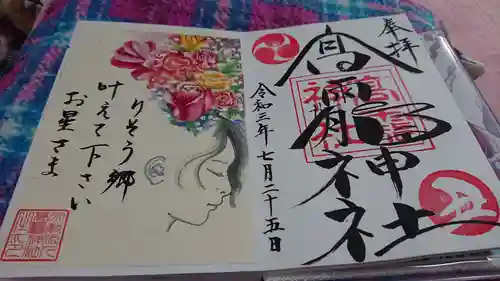 奉拝
高龗神社
令和三年七月二十五日
りそう郷
叶えて下さい
お星さま